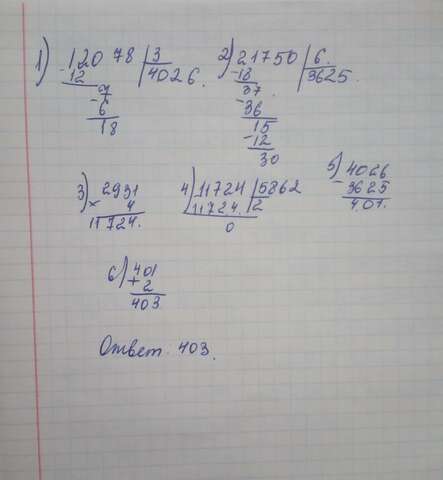 1) 12078 | 3
- 12 4026.
7
- 6
18
2) 21750 | 6.
- 18 3625.
37.
- 36
15
- 12
30
3) 2931
× 4
11724.
4) 11724 | 5862
11724. 2
0
5) 4026
- 3625
401.
6) 401
+ 2
403
Ответ. 403.